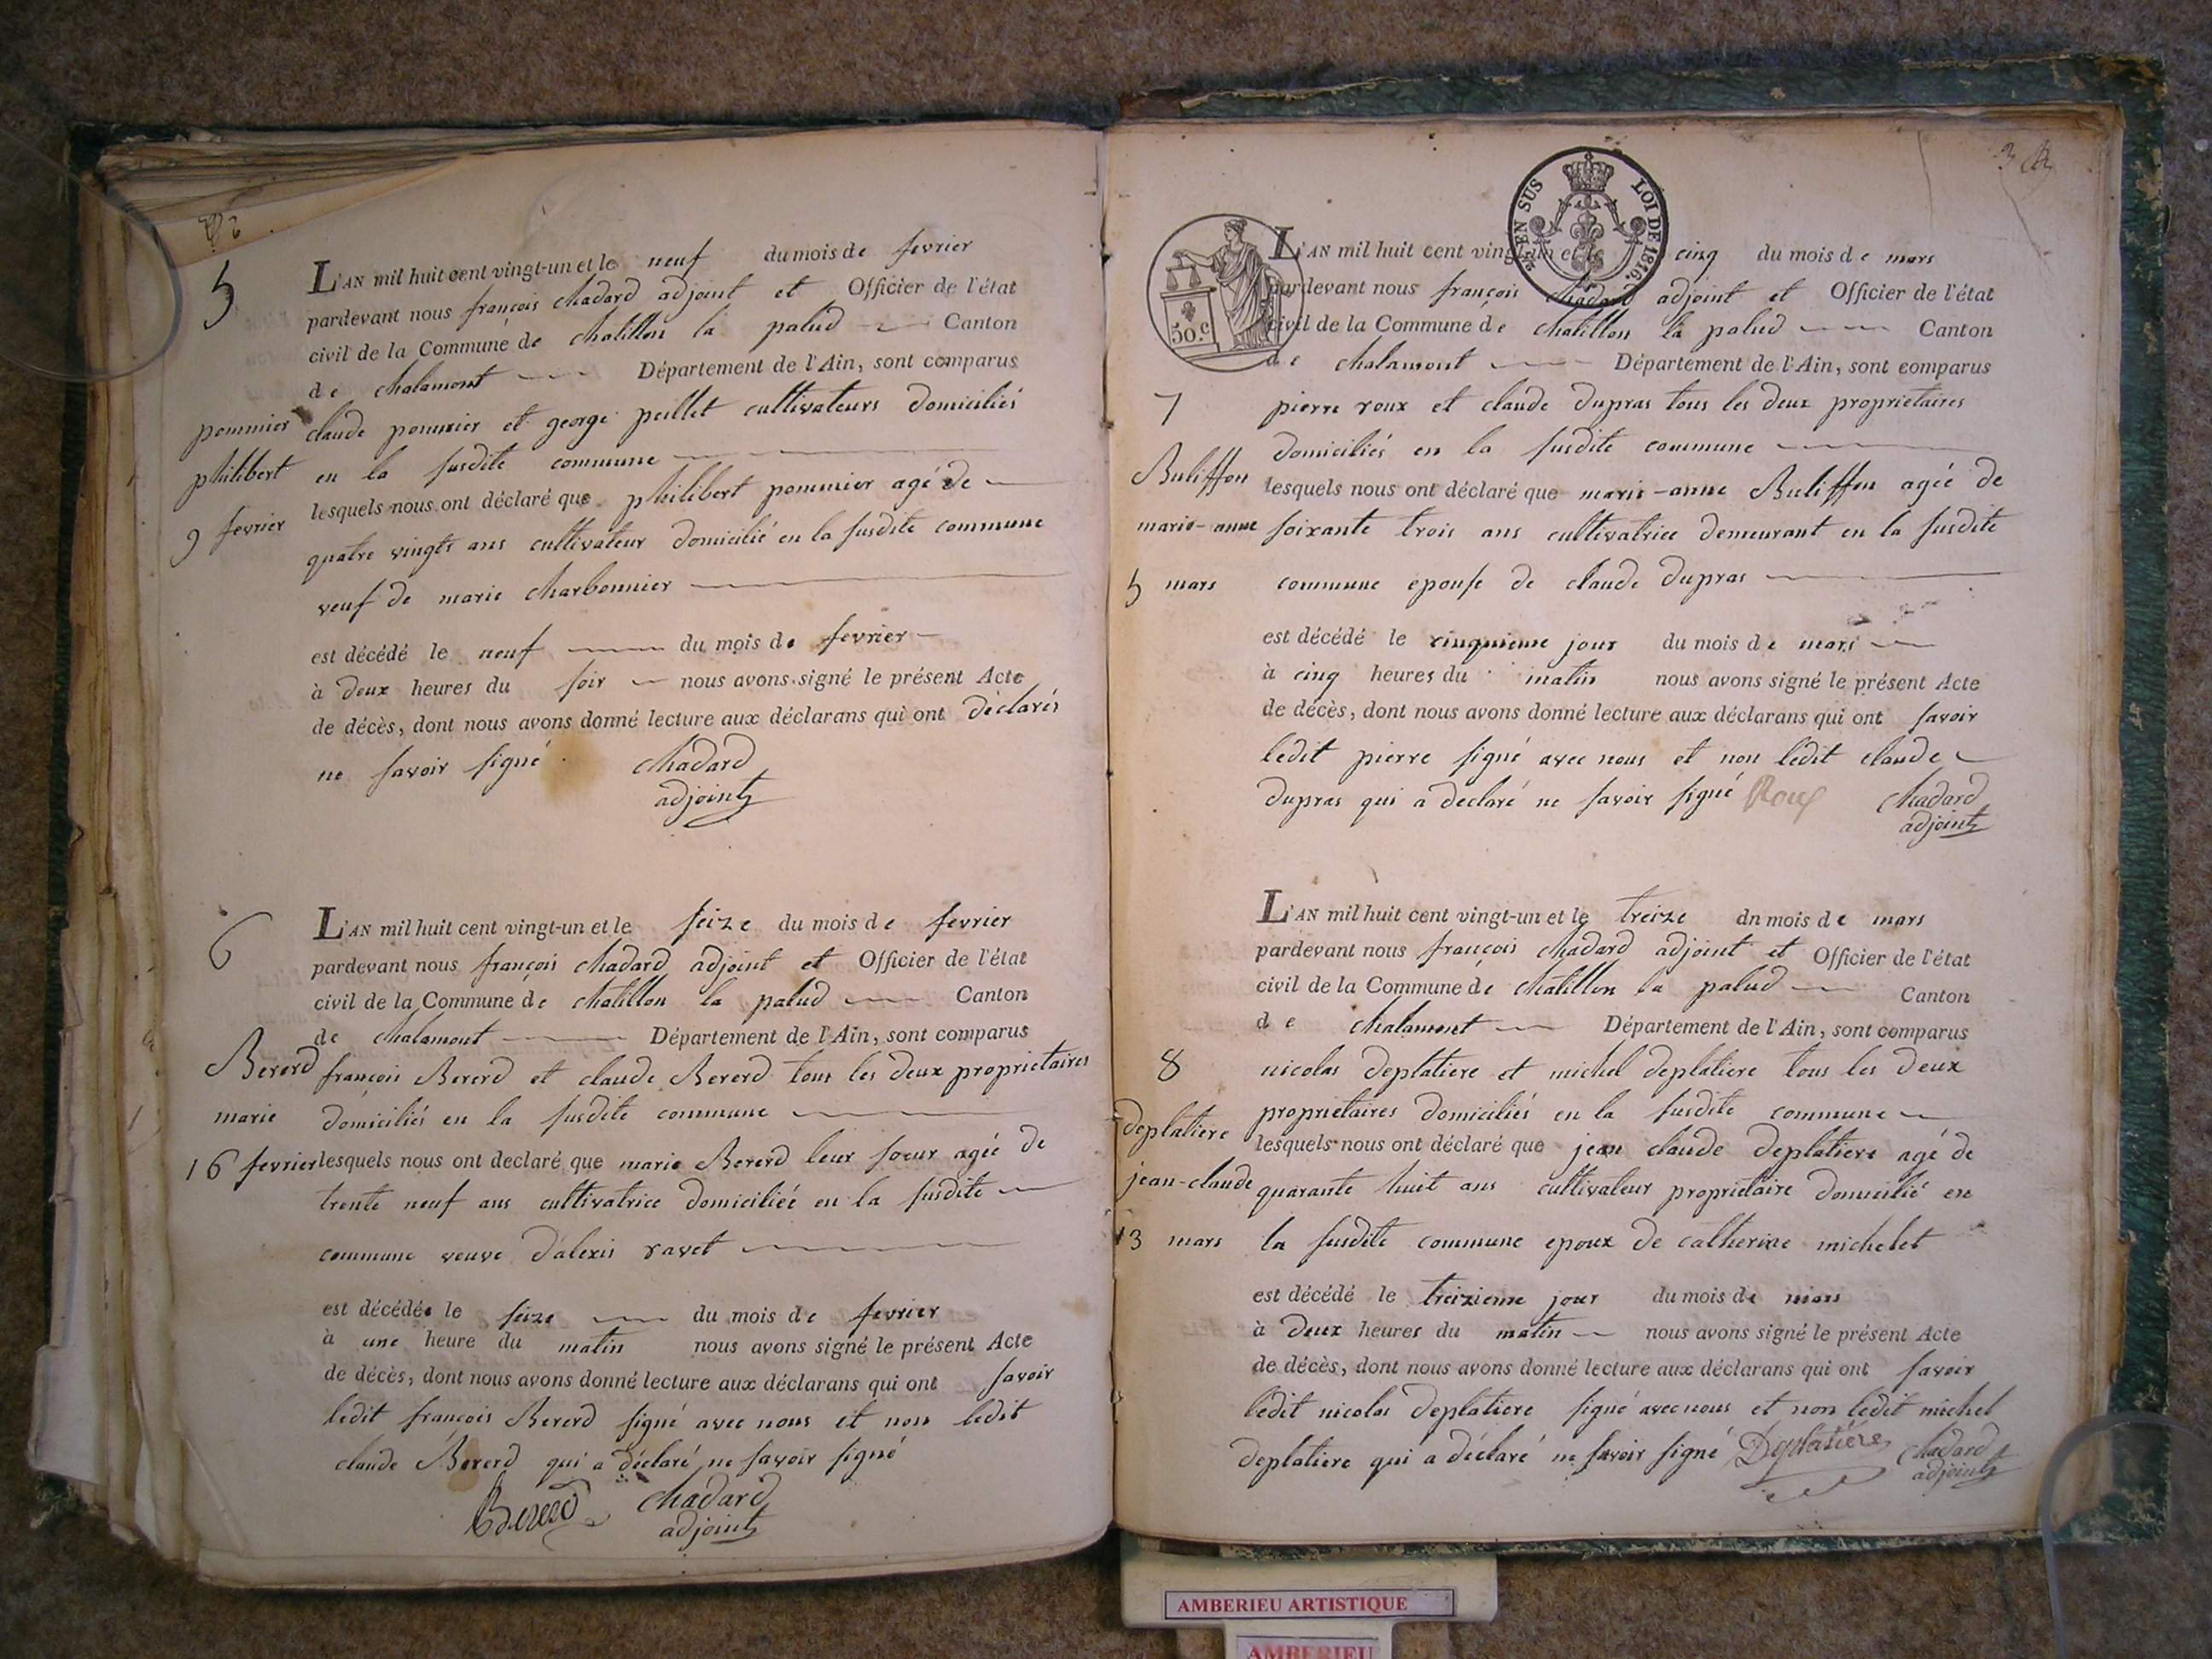 5
L'AN mil huit cent vingt-un et le neuf du mois de fevrier
pardevant nous françois chadard adjoint et Officier de l'état
civil de la Commune de chatillon la palud Canton
de chalamont Département de l'Ain, sont comparus
pommier claude pommier et george peillet cultivateurs domiciliés
philibert en la susdite commune
lesquels nous ont déclaré que philibert pommier agé de
9 fevrier quatre vingts ans cultivateur domicilié en la susdite commune
veuf de marie charbonnier
est décédé le neuf du mois de fevrier
à deux heures du soir nous avons signé le présent Acte
de décès, dont nous avons donné lecture aux déclarans qui ont déclarés
ne savoir signé chadard
adjoint
6
L'AN mil huit cent vingt-un et le seize du mois de fevrier
pardevant nous françois chadard adjoint et Officier de l'état
civil de la Commune de chatillon la palud Canton
de chalamont Département de l'Ain, sont comparus
Bererd françois Bererd et claude Bererd tous les deux proprietaires
marie domiciliés en la susdite commune
16 fevrier lesquels nous ont declaré que marie Bererd leur soeur agée de
trente neuf ans cultivatrice domiciliée en la susdite
commune veuve d'alexis ravet
est décédée le seize du mois de fevrier
à une heure du matin nous avons signé le présent Acte
de décès, dont nous avons donné lecture aux déclarans qui ont savoir
ledit françois Bererd signé avec nous et non ledit
claude Bererd qui a déclaré ne savoir signé
Bererd chadard
adjoint
3
EN SUS LOI DE 1816.
50.c
L'AN mil huit cent vingt-un et le cinq du mois de mars
pardevant nous françois chadard adjoint et Officier de l'état
civil de la Commune de chatillon la palud Canton
de chalamont Département de l'Ain, sont comparus
7 pierre roux et claude dupras tous les deux proprietaires
domiciliés en la susdite commune
Buliffon lesquels nous ont déclaré que marie-anne Buliffon agée de
marie-anne soixante trois ans cultivatrice demeurant en la susdite
5 mars commune epouse de claude dupras
est décédé le cinquieme jour du mois de mars
à cinq heures du matin nous avons signé le présent Acte
de décès, dont nous avons donné lecture aux déclarans qui ont savoir
ledit pierre signé avec nous et non ledit claude
dupras qui a declaré ne savoir signé Roux chadard
adjoint
L'AN mil huit cent vingt-un et le treize dn mois de mars
pardevant nous françois chadard adjoint et Officier de l'état
civil de la Commune de chatillon la palud Canton
de chalamont Département de l'Ain, sont comparus
8 nicolas deplatiere et michel deplatiere tous les deux
proprietaires domiciliés en la susdite commune
deplatiere lesquels nous ont déclaré que jean claude deplatiere agé de
jean-claude quarante huit ans cultivateur proprietaire domicilié en
13 mars la susdite commune epoux de catherine michelet
est décédé le treizieme jour du mois de mars
à deux heures du matin nous avons signé le présent Acte
de décès, dont nous avons donné lecture aux déclarans qui ont savoir
ledit nicolas deplatiere signé avec nous et non ledit michel
deplatiere qui a déclaré ne savoir signé Deplatière chadard
adjoint
AMBERIEU ARTISTIQUE
AMBERIEU